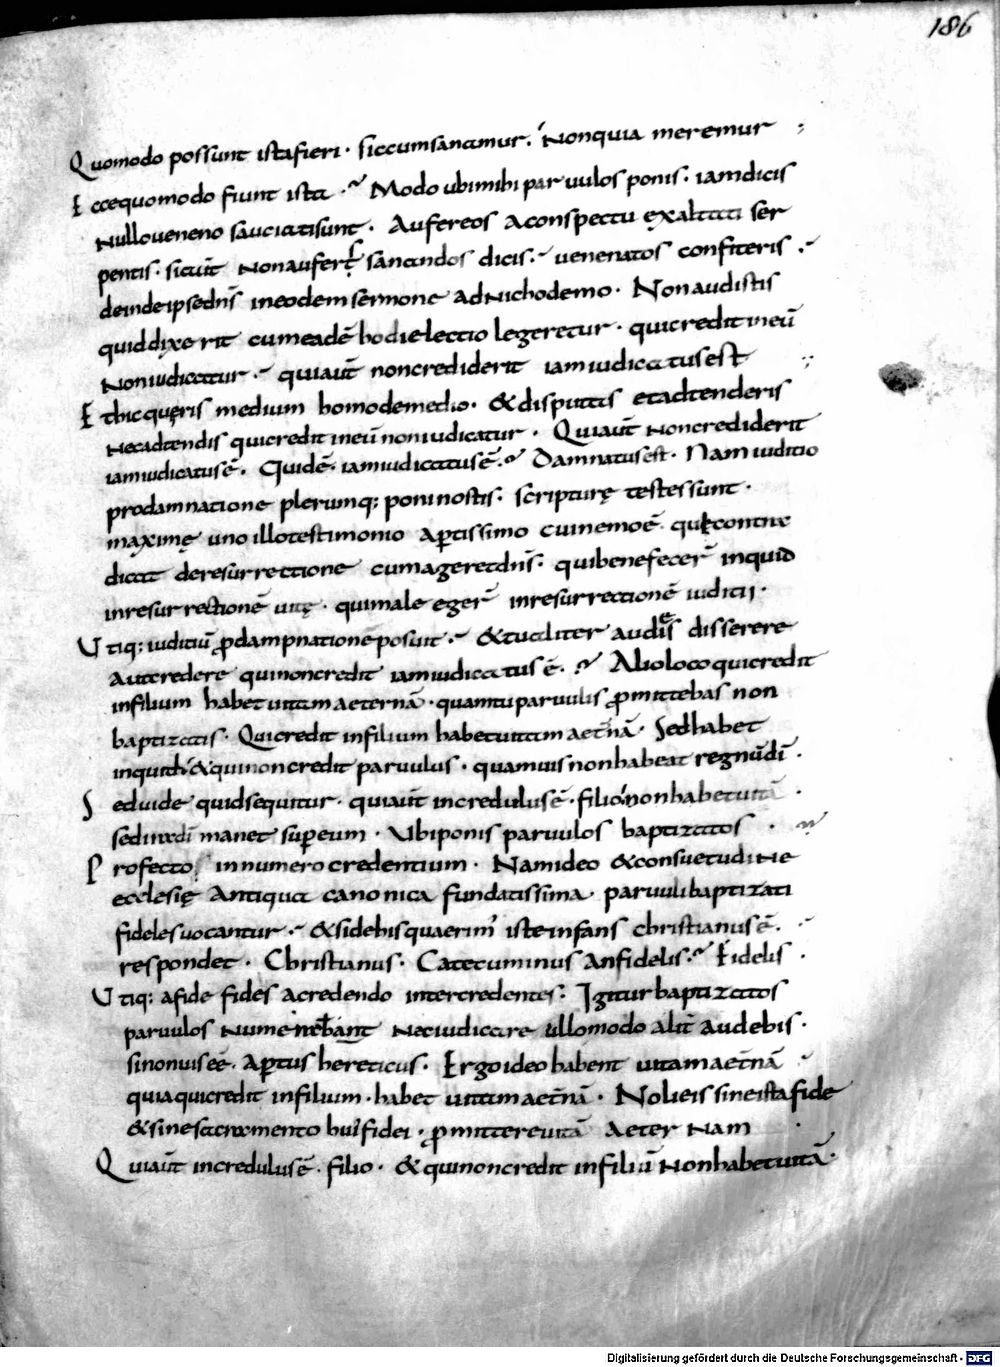 186
Quomodo possunt ista fieri · sic cum sanamur. Non quia meremur ;
Ecce quomodo fiunt ista · Modo ubi mihi paruulos ponis : iam dicis
Nullo ueneno sauciati sunt · Aufer eos a conspectu exaltati ser
pentis · si aūt non aufers sanandos dicis · uenenatos confiteris ·
deinde ipse dn̄s in eodem sermone ad Nichodemo · Non audistis
quid dixerit cum eadē hodie lectio legeretur · qui credit in eū
Non iudicatur · qui aūt non crediderit iam iudicatus est
Et hic quęris medium homo de medio · & disputas et adtenderis
Nec adtendis qui credit in eū non iudicatur · Qui aūt non crediderit
iam iudicatus ē · Quid ē · iam iudicatus ē · Damnatus est · Nam iuditio
pro damnatione plerumq; poni nostis : scripturę testes sunt ·
maximę uno illo testimonio aptissimo cui nemo ē quē contra
dicat de resurrectione cum ageret dn̄s · qui bene fecer̄ inquid
in resurrectionē uitę · qui male eger̄ in resurrectionē iuditii ·
Utiq: iuditiū p dampnatione posuit · & tu aliter audes disserere
Aut credere qui non credit iam iudicatus ē · Alio loco qui credit
in filium habet uitam aeternā · quam tu paruulis p mittebas non
baptizatis · Qui credit in filium habet uitam aet̄nā · Sed habet
inquit & qui non credit paruulus · quamuis non habeat regnū dī ·
Sed uide quid sequitur · qui aūt incredulus ē · filio non habet uitā ·
sed ira dī manet sup eum · Ubi ponis paruulos baptizatos ·
Profecto in numero credentium · Nam ideo & consuetudine
ecclesię Antiqua canonica fundatissima · paruuli baptizati
fideles uocantur · & si de his quaerim' iste infans christianus ē ·
respondet · Christianus · Catecuminus an fidelis · Fidelis ·
Utiq: a fide fides a credendo inter credentes : Igitur baptizatos
paruulos Nec iudicare ullo modo alit̄ audebis ·
si non uis eē · aptus hereticus · Ergo ideo habent uitam aet̄nā
quia qui credit in filium · habet uitam aet̄nā · Noli eis sine ista fide
& sine sacramento hui' fidei · p mittere uitā Aeternam ·
Qui aūt incredulus ē · filio · & qui non credit in filiū Non habet uitā ·
Digitalisierung gefördert durch die Deutsche Forschungsgemeinschaft - DFG